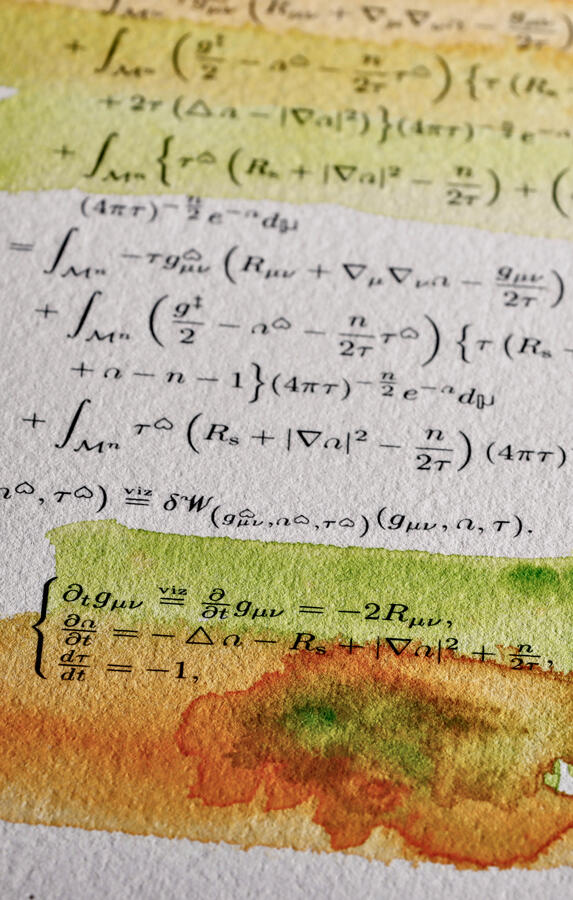 (R_{μν} + ∇_μ∇_ν𝑛 − g_{μν}/2τ)
+ ∫_{𝓜ⁿ} (g^‡/2 − 𝑛^⌂ − n/2τ τ^⌂) {τ (R_s
+ 2τ (△𝑛 − |∇𝑛|²)}(4πτ)^{−n/2} e^{−𝑛}
+ ∫_{𝓜ⁿ} {τ^⌂ (R_s + |∇𝑛|² − n/2τ) + (
(4πτ)^{−n/2} e^{−𝑛} d
= ∫_{𝓜ⁿ} −τg^⌂_{μν} (R_{μν} + ∇_μ∇_ν𝑛 − g_{μν}/2τ)
+ ∫_{𝓜ⁿ} (g^‡/2 − 𝑛^⌂ − n/2τ τ^⌂) {τ (R_s
+ 𝑛 − n − 1}(4πτ)^{−n/2} e^{−𝑛} d
+ ∫_{𝓜ⁿ} τ^⌂ (R_s + |∇𝑛|² − n/2τ) (4πτ)
𝑛^⌂, τ^⌂) ≝viz δ𝓦_{(g^⌂_{μν}, 𝑛^⌂, τ^⌂)}(g_{μν}, 𝑛, τ).
{ ∂_t g_{μν} =viz ∂/∂t g_{μν} = −2R_{μν},
∂𝑛/∂t = −△𝑛 − R_s + |∇𝑛|² + n/2τ,
dτ/dt = −1,